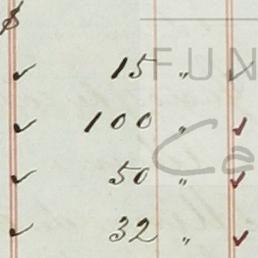 $
✓ 15 " ✓
✓ 100 " ✓
✓ 50 " ✓
✓ 32 " ✓
FUN
Ca